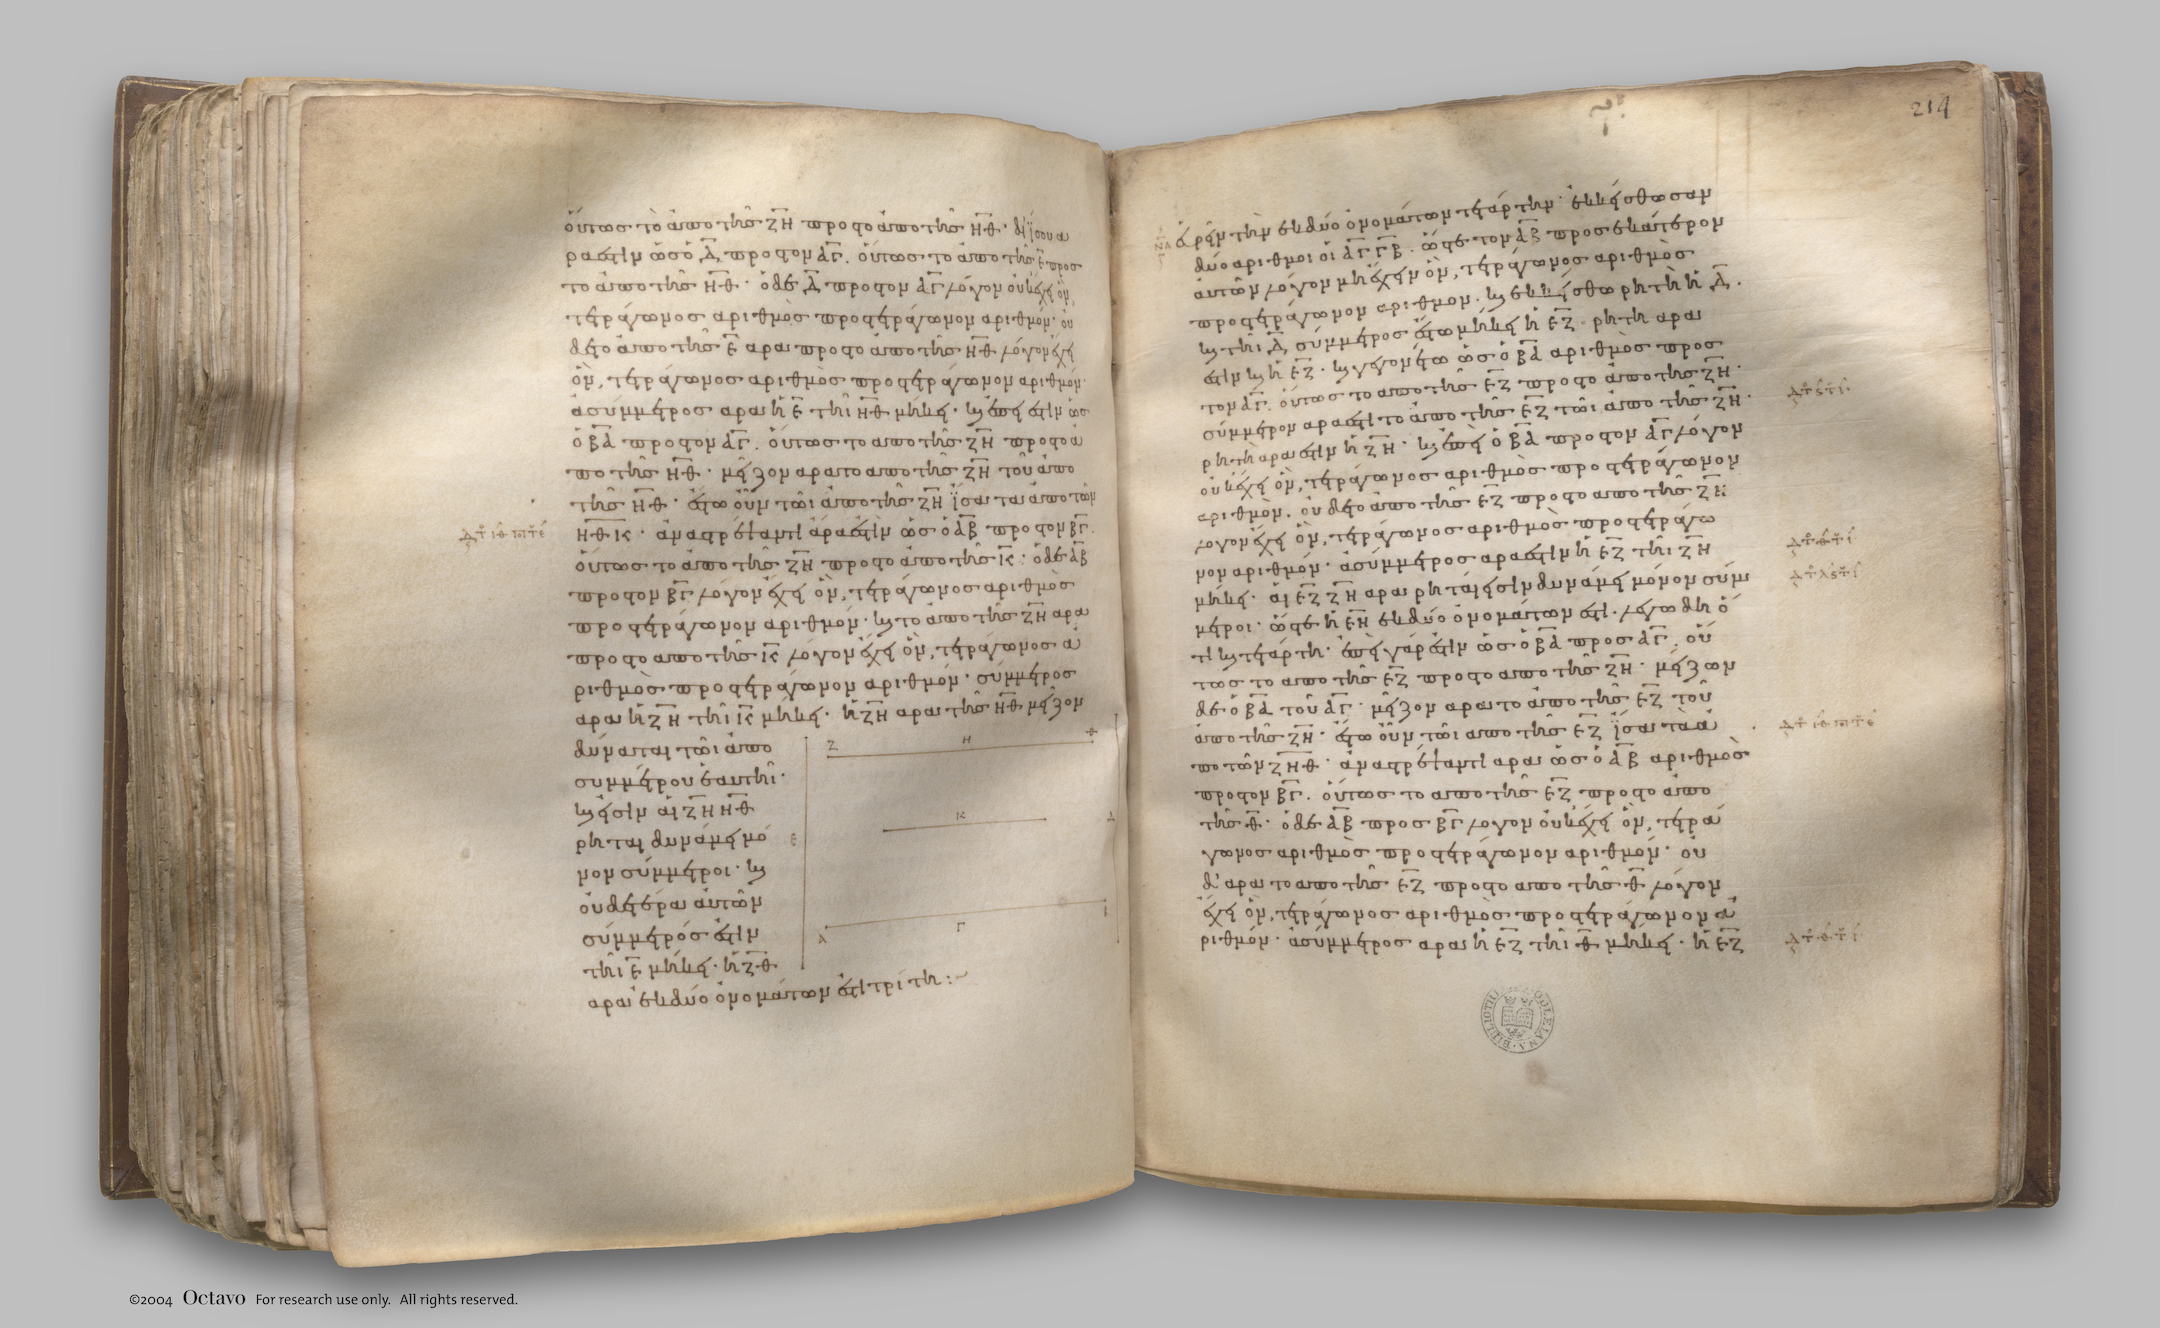 οὕτως τὸ ἀπὸ τῆς ΖΗ προς το ἀπὸ τῆς ΗΘ· δι ἴσου α
ρα ἐστὶν ὡς ὁ Δ προς τον ΑΓ. οὕτως το ἀπο τῆς Ε προς
το ἀπο τῆς ΗΘ· ὁ δε Δ προς τον ΑΓ λόγον οὐκ ἔχει ὃν
τετράγωνος αριθμὸς προς τετράγωνον αριθμόν· ου
δε το ἀπο τῆς Ε αρα προς το ἀπο τῆς ΗΘ λόγον ἔχει
ὃν τετράγωνος αριθμὸς προς τετράγωνον αριθμόν·
ἀσύμμετρος αρα ἡ Ε τῆι ΗΘ μήκει· καὶ ἐπεὶ ἐστὶν ὡς
ὁ ΒΑ προς τον ΑΓ. οὕτως το απο τῆς ΖΗ προς το ἀ
πο τῆς ΗΘ· μεῖζον αρα το απο τῆς ΖΗ τοῦ ἀπο
τῆς ΗΘ· ἔστω οὖν τῶι ἀπο τῆς ΖΗ ἴσα τα ἀπο τῶν
ΗΘ Κ· ἀναστρέψαντι ἄρα ἐστὶν ὡς ὁ ΑΒ προς τον ΒΓ.
οὕτως το ἀπο τῆς ΖΗ προς το ἀπο τῆς Κ· ὁ δε ΑΒ
προς τον ΒΓ λόγον ἔχει ὃν τετράγωνος αριθμὸς
προς τετράγωνον αριθμόν· καὶ το ἀπο τῆς ΖΗ αρα
προς το απο τῆς Κ λόγον ἔχει ὃν τετράγωνος ἀ
ριθμὸς προς τετράγωνον αριθμόν· σύμμετρος
αρα ἡ ΖΗ τῆι Κ μήκει· ἡ ΖΗ αρα τῆς ΗΘ μεῖζον
δύναται τῶι ἀπο
συμμέτρου ἑαυτῆι·
καὶ εἰσὶν αἱ ΖΗ ΗΘ
ρηται δυνάμει μό
νον σύμμετροι· καὶ
οὐδετέρα αὐτῶν
σύμμετρός ἐστιν
τῆι Ε μήκει· ἡ ΖΘ
αρα ἐκ δύο ὀνομάτων ἐστὶ τρίτη :~
Ζ Η Θ
Κ
Ε
Α Γ
Δ
214
ΝΑ
Εὑρεῖν τὴν ἐκ δύο ὀνομάτων τετάρτην· ἐκκείσθωσαν
δύο αριθμοι οἱ ΑΓ ΓΒ. ὥστε τον ΑΒ προς ἑκάτερον
ἀυτῶν λόγον μη ἔχειν ὃν τετράγωνος αριθμὸς
προς τετράγωνον αριθμον. καὶ ἐκκείσθω ρητὴ ἡ Δ.
καὶ τῆι Δ σύμμετρος ἔστω μήκει ἡ ΕΖ· ρητη αρα
ἐστὶν καὶ ἡ ΕΖ· καὶ γεγονέτω ὡς ὁ ΒΑ αριθμὸς προς
τον ΑΓ. οὕτως το απο τῆς ΕΖ προς το ἀπο τῆς ΖΗ·
σύμμετρον αρα ἐστὶ το ἀπο τῆς ΕΖ τῶι ἀπο τῆς ΖΗ·
ρητη αρα ἐστὶν ἡ ΖΗ· καὶ ἐπεὶ ὁ ΒΑ προς τον ΑΓ λόγον
οὐκ ἔχει ὃν τετράγωνος αριθμὸς προς τετράγωνον
αριθμὸν. οὐδε το ἀπο τῆς ΕΖ προς το απο τῆς ΖΗ
λόγον ἔχει ὃν τετράγωνος αριθμὸς προς τετράγω
νον αριθμόν· ἀσύμμετρος αρα ἐστὶν ἡ ΕΖ τῆι ΖΗ
μήκει· αἱ ΕΖ ΖΗ αρα ρηταί εἰσιν δυνάμει μόνον σύμ
μετροι· ὥστε ἡ ΕΗ ἐκ δύο ὀνομάτων ἐστὶ· λέγω δη ὅ
τι καὶ τετάρτη· ἐπεὶ γάρ ἐστιν ὡς ὁ ΒΑ προς ΑΓ. οὕ
τως το απο τῆς ΕΖ προς το απο τῆς ΖΗ· μείζων
δε ὁ ΒΑ τοῦ ΑΓ· μεῖζον αρα το ἀπο τῆς ΕΖ τοῦ
ἀπο τῆς ΖΗ· ἔστω οὖν τῶι ἀπο τῆς ΕΖ ἴσα τὰ ἀ
πο τῶν ΖΗ Θ· ἀναστρέψαντι αρα ὡς ὁ ΑΒ αριθμὸς
προς τον ΒΓ. οὕτως το απο τῆς ΕΖ προς το ἀπο
τῆς Θ· ὁ δε ΑΒ προς ΒΓ λόγον οὐκ ἔχει ὃν τετρά
γωνος αριθμὸς προς τετράγωνον αριθμόν· ου
δ' αρα το απο τῆς ΕΖ προς το απο τῆς Θ λόγον
ἔχει ὃν τετράγωνος αριθμὸς προς τετράγωνον ἀ
ριθμόν· ἀσύμμετρος αρα ἡ ΕΖ τῆι Θ μήκει· ἡ ΕΖ
BIBLIOTHECA BODLEIANA
©2004 Octavo For research use only. All rights reserved.